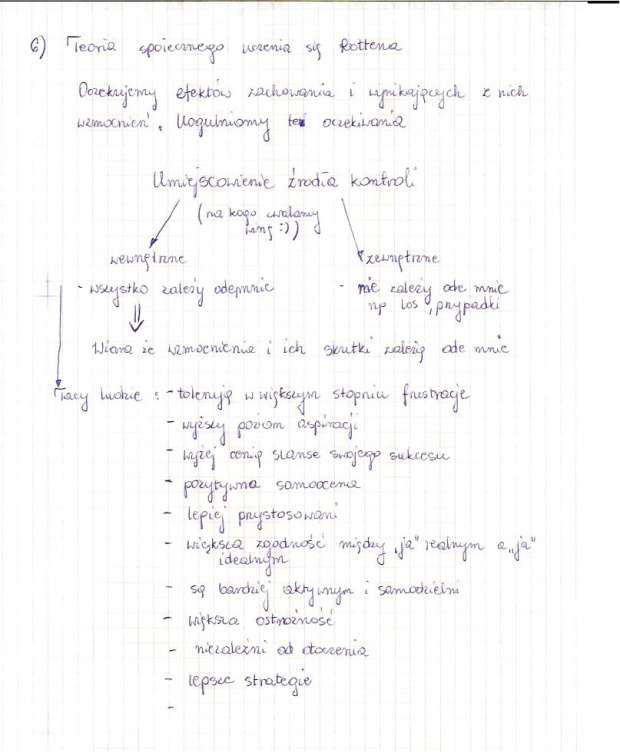 6) Teoria społecznego uczenia się Rottera
Oczekujemy efektów zachowania i wynikających z nich
wzmocnień. Uogulniamy te oczekiwania
Umiejscowienie źródła kontroli
(na kogo zwalamy
winę :))
wewnętrzne
zewnętrzne
- wszystko zależy odemnie
- nie zależy ode mnie
np los, przypadki
Wiara że wzmocnienia i ich skutki zależą ode mnie
Tacy ludzie : - tolerują w większym stopniu frustracje
- wyższy poziom aspiracji
- wyżej cenią szanse swojego sukcesu
- pozytywna samoocena
- lepiej przystosowani
- większa zgodność między „ja" realnym a „ja"
idealnym
- są bardziej aktywnym i samodzielni
- większa ostrożność
- niezależni od otoczenia
- lepsze strategie
-